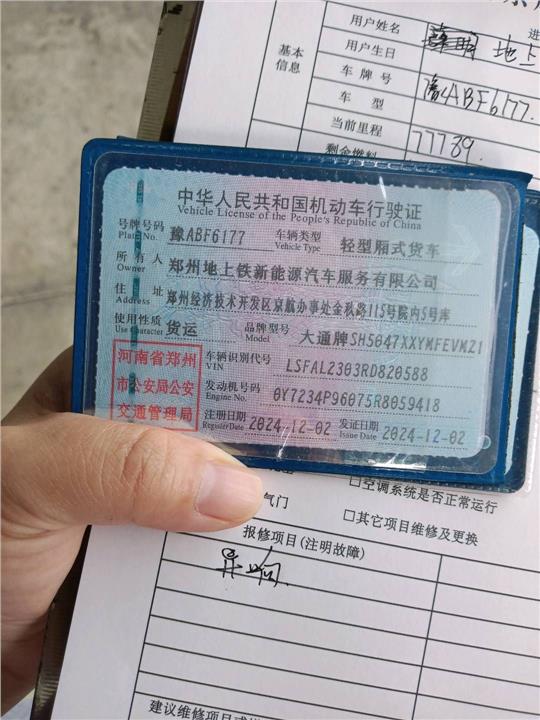 用户姓名 地上
进
基本信息
用户生日
车牌号 豫ABF6177
车型
当前里程 77739
剩余燃料
中华人民共和国机动车行驶证
Vehicle License of the People's Republic of China
号牌号码 Plate No. 豫ABF6177 车辆类型 Vehicle Type 轻型厢式货车
所有人 Owner 郑州地上铁新能源汽车服务有限公司
住址 Address 郑州经济技术开发区京航办事处金秋路115号院内5号库
使用性质 Use Character 货运 品牌型号 Model 大通牌SH5047XXYMFEVMZ1
河南省郑州市公安局公安交通管理局
车辆识别代号 VIN LSFAL2303RD820588
发动机号码 Engine No. 0Y7234P96075R8059418
注册日期 Register Date 2024-12-02 发证日期 Issue Date 2024-12-02
□空调系统是否正常运行
气门 □其它项目维修及更换
报修项目(注明故障)
异响
建议维修项目或